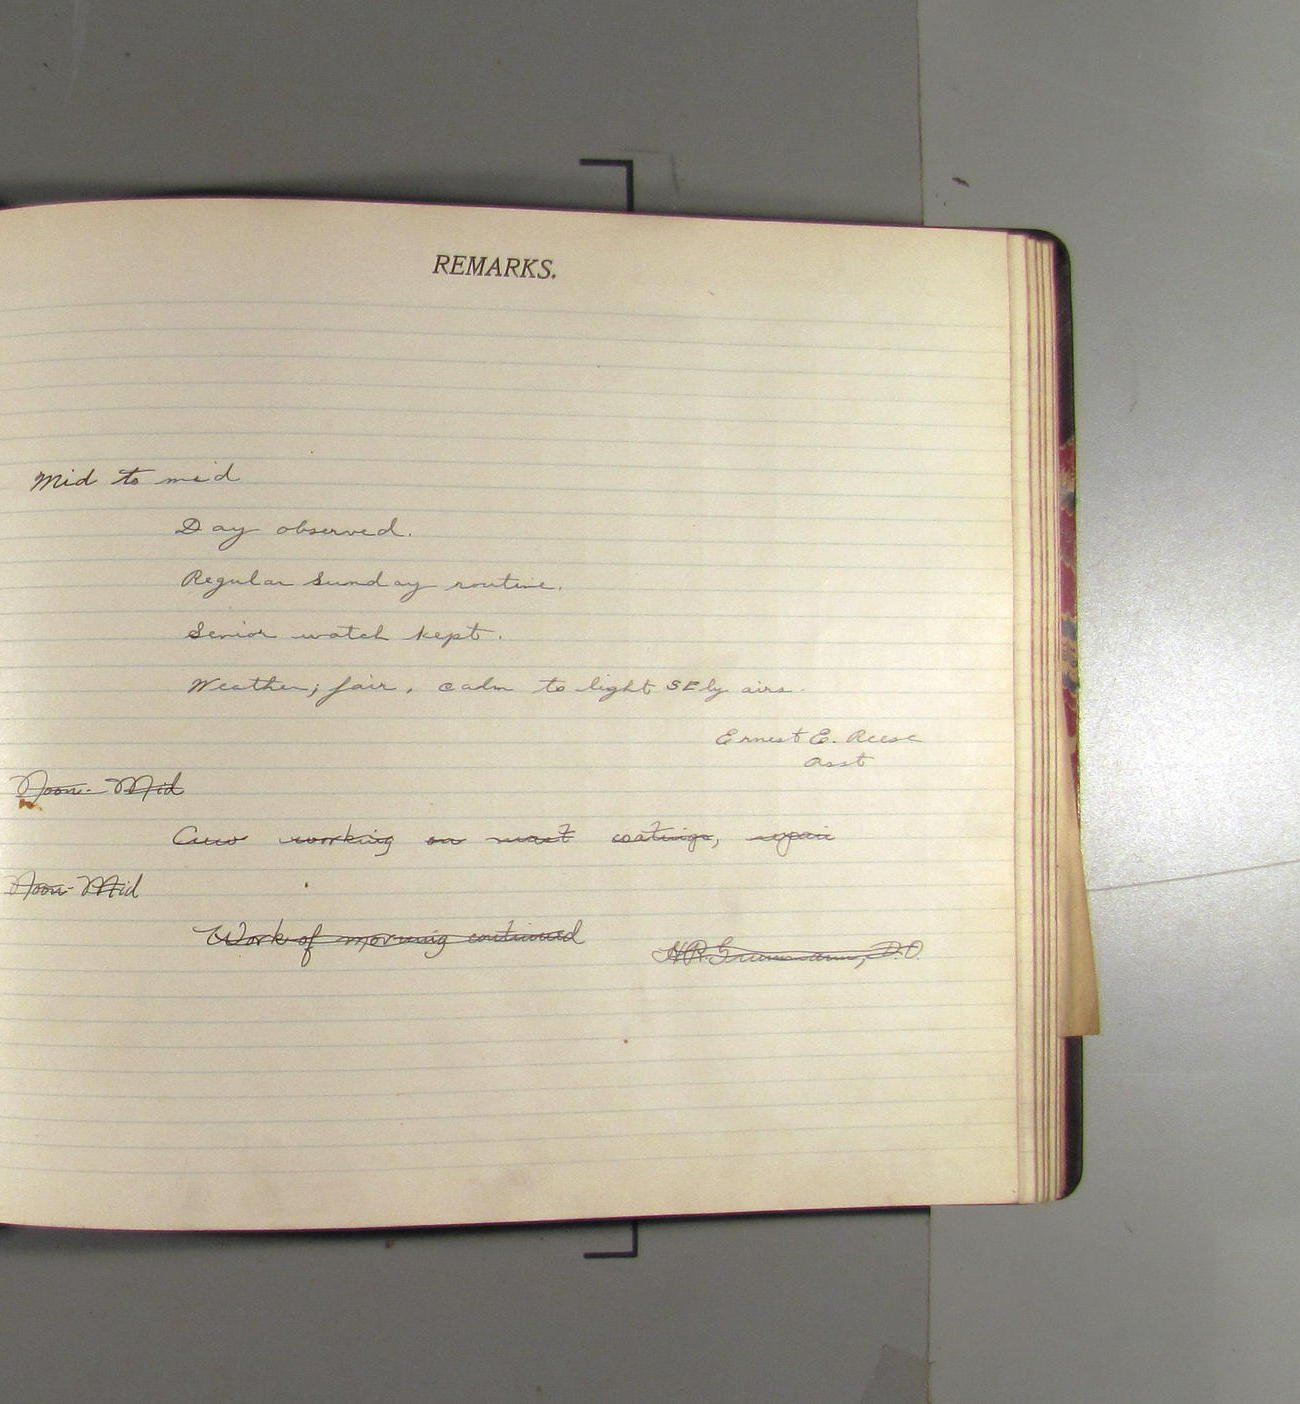 REMARKS.
Mid to mid
Day observed.
Regular Sunday routine.
Senior watch kept.
Weather; fair, calm to light SEly airs.
Ernest E. Reese
Asst
Noon-Mid
Crew working on mast coatings, repair
Noon-Mid
Work of morning continued
H.R. Grummann, D.O.